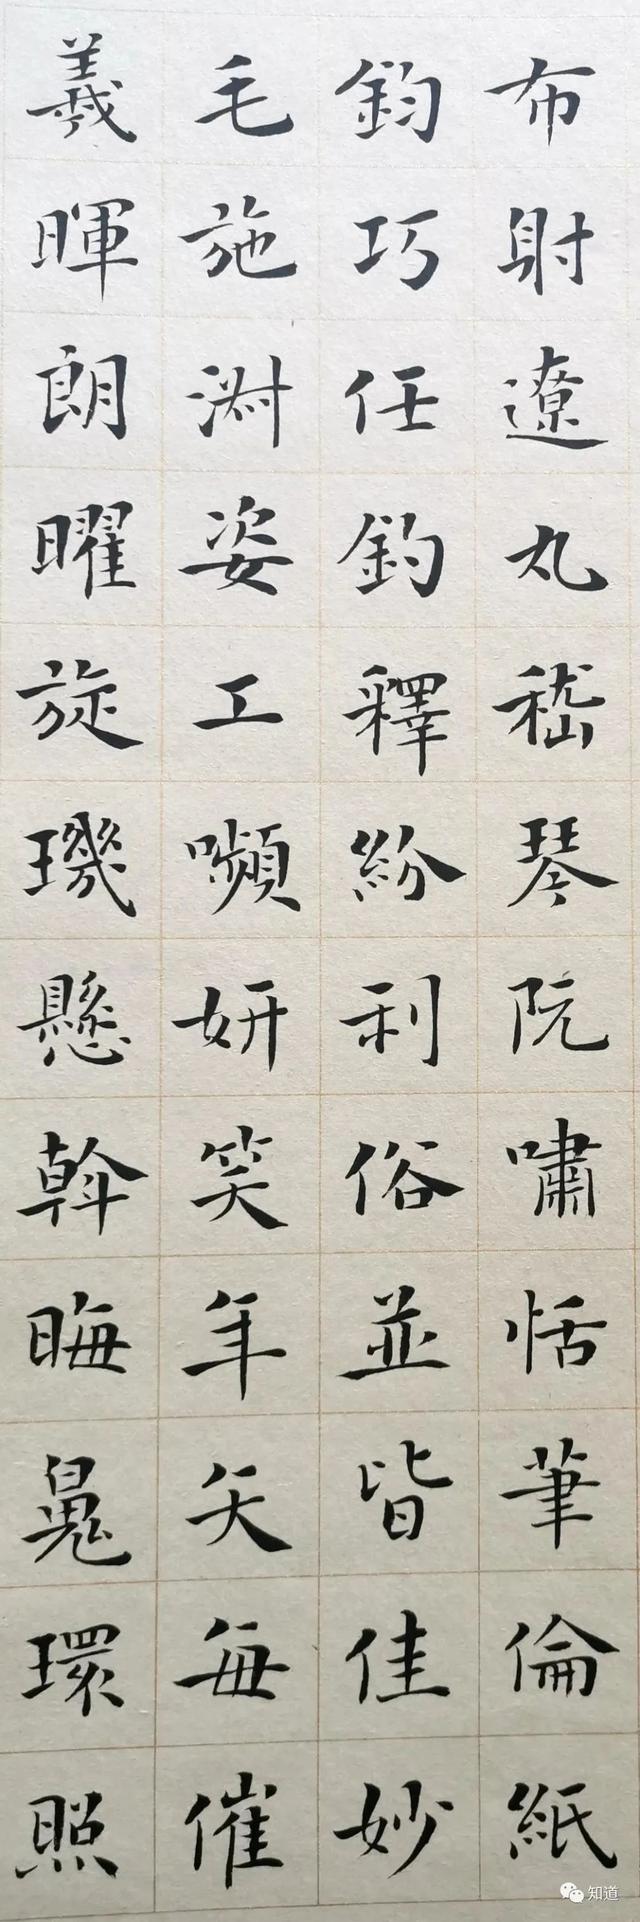 布射遼丸嵇琴阮嘯恬筆倫紙
鈞巧任釣釋紛利俗並皆佳妙
毛施淑姿工嚬妍笑年矢每催
羲暉朗曜旋璣懸斡晦魄環照
知道